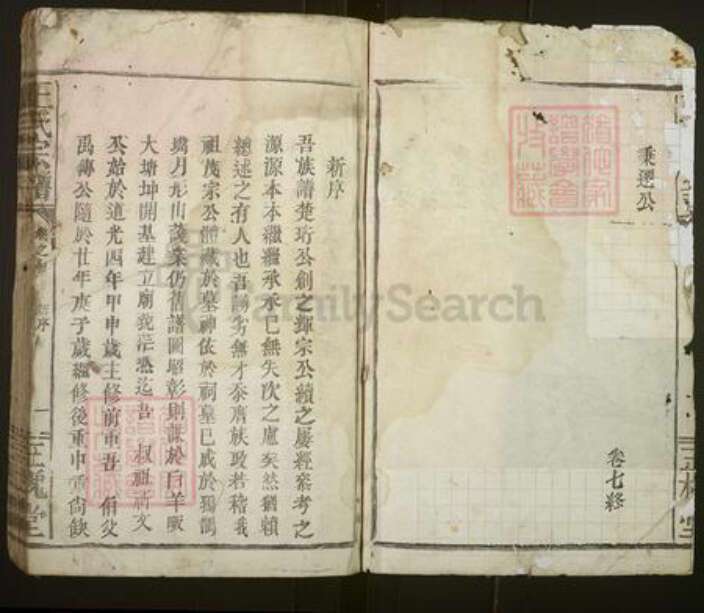 秉選公
卷七終
新序
吾族譜楚珩公創之輝宗公續之屢經參考之
源源本本繼繼承承已無失次之慮矣然猶賴
總述之有人也吾劣無才忝膺族政若稽我
祖茂宗公體藏於墓神依於祠墓已咸於獨鶴
月形山茂業仍舊譜圖昭彰則謀於白羊畈
大塘坤開基建立廟貌茫然迄吾叔祖齋文
公始於道光四年甲申歲主修前車吾伯父
禹傳公隨於廿年庚子歲繼修後車申之尚缺
王氏宗譜
新序
一
三槐堂
三槐堂
FamilySearch